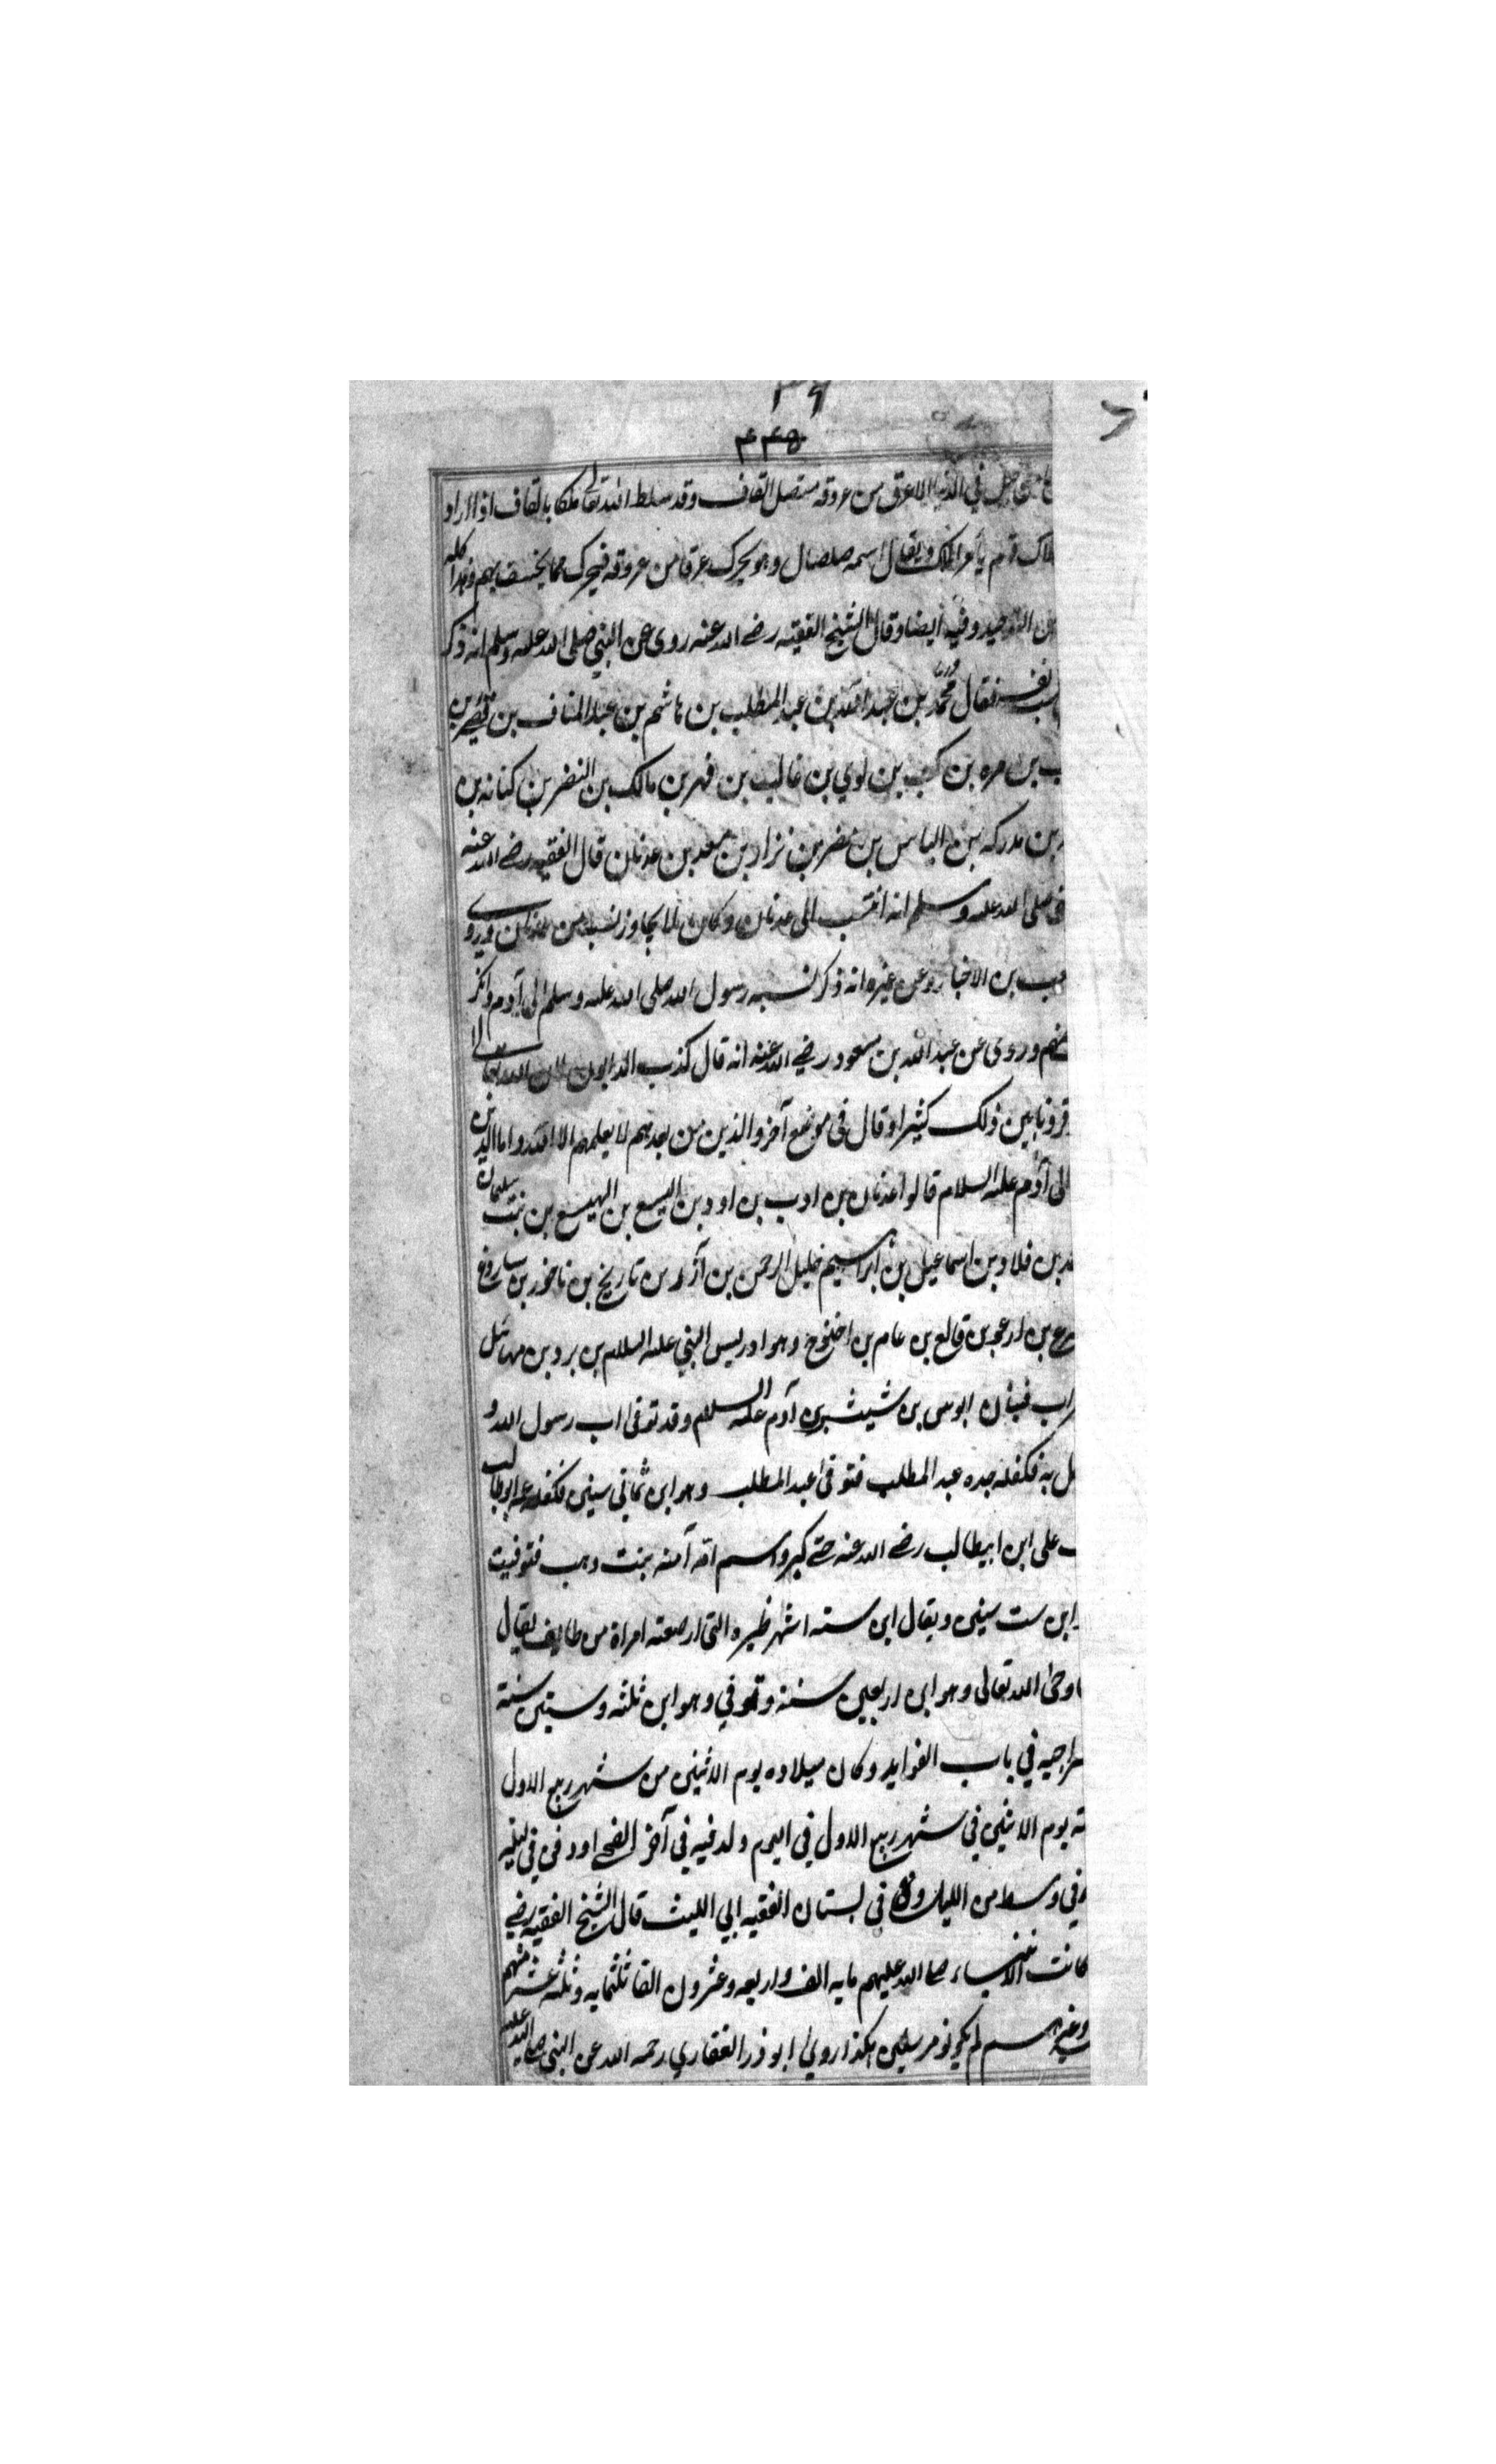 ٣٩
٤٤٥
جبل في الدنيا الا عرق من عروقه متصل القاف وقد سلط الله تعالى ملكا بالقاف اذا اراد
هلاك قوم يأمر الملك ويقال اسمه صلصال وهو يحرك عرقا من عروقه فيحرك مما يخسف بهم وهذا كله
من التوحيد وفيه ايضا وقال الشيخ الفقيه رضي الله عنه روى عن النبي صلى الله عليه وسلم انه ذكر
نسب نفسه فقال محمد بن عبد الله بن عبد المطلب بن هاشم بن عبد المناف بن قصي بن
ب بن مره بن كعب بن لوي بن غالب بن فهر بن مالك بن النضر بن كنانه بن
بن مدركه بن الياس بن مضر بن نزار بن معد بن عدنان قال الفقيه رضي الله عنه
صلى الله عليه وسلم انه انتسب الى عدنان وكان لا يجاوز نسبه من عدنان وروى
عب بن الاخبار وعن غيره انه ذكر نسبه رسول الله صلى الله عليه وسلم الى آدم وانكر
ضهم وروى عن عبد الله بن مسعود رضي الله عنه انه قال كذب لان الله تعالى
قرونا بين ذلك كثيرا وقال في موضع آخر والذين من بعدهم لا يعلمهم الا الله واما الذين
الى آدم عليه السلام قالوا عدنان بن ادب بن اود بن اليسع بن الهيسع بن نبت سليمان
بن فلاد بن اسماعيل بن ابراهيم خليل الرحمن بن آزر بن تاريخ بن ناخور بن ساروغ
بن ارغو بن قالع بن عام بن اخنوخ وهو ادريس النبي عليه السلام بن برد بن مهائيل
بن شيث بن آدم عليه السلام وقد توفى اب رسول الله و
ل به فكفله جده عبد المطلب فتوفى عبد المطلب وهو ابن ثماني سنين فكفله عمه ابو طالب
ب على ابن ابيطالب رضي الله عنه حتى كبر واسم امه آمنه بنت وهب فتوفيت
ابن ست سنين ويقال ابن سته اشهر ظيره التى ارضعته امراة من طايف يقال
اوحى الله تعالى وهو ابن اربعين سنة وتوفي وهو ابن ثلثه وستين سنة
راجيه في باب الفوايد وكان ميلاده يوم الاثنين من شهر ربيع الاول
ته يوم الاثنين في شهر ربيع الاول في اليوم ولد فيه في آخر الضحى او دفن في ليله
في وسط من الليل وفي بستان الفقيه ابي الليث قال الشيخ الفقيه رضي
كانت الانبياء صلى الله عليهم مايه الف واربعه وعشرون الفا ثلثمايه وثلثه عشر منهم
وغيرهم لم يكونوا مرسلين هكذا روى ابو ذر الغفاري رحمه الله عن النبي صلى الله عليه